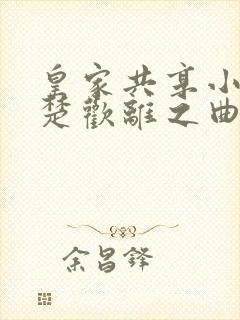 皇家共享小
楚歡離之曲
余昌鋒